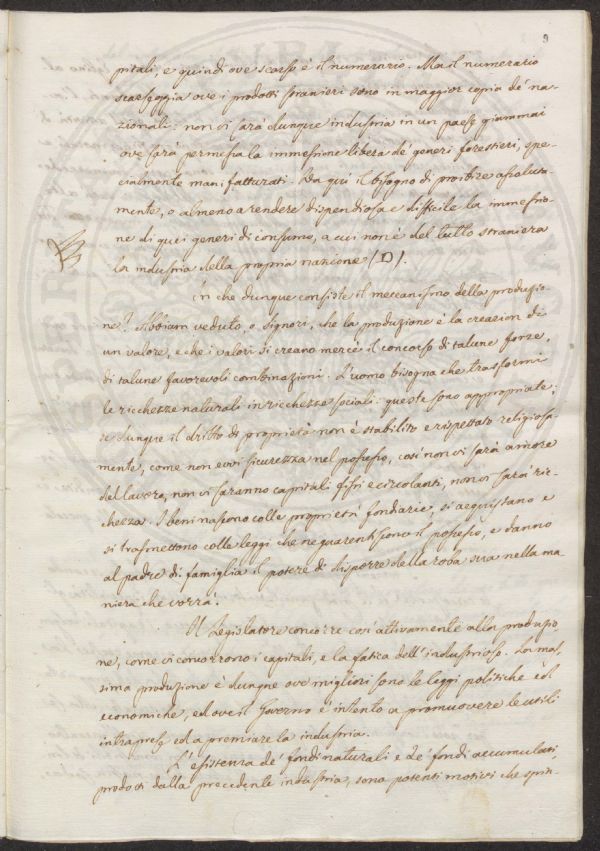 9
pitali, e quindi ove scarso è il numerario. Ma il numerario
scarseggia ove i prodotti stranieri sono in maggior copia de' na-
zionali: non vi sarà dunque industria in un paese giammai
ove sarà permessa la immessione libera de' generi forestieri, spe-
cialmente manifatturati. Da quì il bisogno di proibire assoluta-
mente, o almeno a rendere dispendiosa e difficile la immessio-
ne di quei generi di consumo, a cui non è del tutto straniera
la industria della propria nazione (D).
In che dunque consiste il meccanismo della produzio-
ne? Abbiam veduto, o Signori, che la produzione è la creazion di
un valore, e che i valori si creano mercè il concorso di talune forze,
di talune favorevoli combinazioni. L'uomo bisogna che trasformi
le ricchezze naturali in ricchezze sociali: queste sono appropriate;
se dunque il dritto di proprietà non è stabilito e rispettato religiosa-
mente, come non evvi sicurezza nel possesso, così non vi sarà amore
del lavoro, non vi saranno capitali fissi e circolanti, non vi sarà ric-
chezza. I beni nascono colle proprietà fondiarie, si acquistano e
si trasmettono colle leggi che ne guarentiscono il possesso, e danno
al padre di famiglia il potere di disporre della roba sua nella ma-
niera che vorrà.
Il Legislatore concorre così attivamente alla produzio-
ne, come vi concorrono i capitali, e la fatica dell'industrioso. La mas-
sima produzione è dunque ove migliori sono le leggi politiche ed
economiche, ed ove il Governo è intento a promuovere le utili
intraprese ed a premiare la industria.
L'esistenza de' fondi naturali e de' fondi accumulati
prodotti dalla precedente industria, sono potenti motivi che spin-